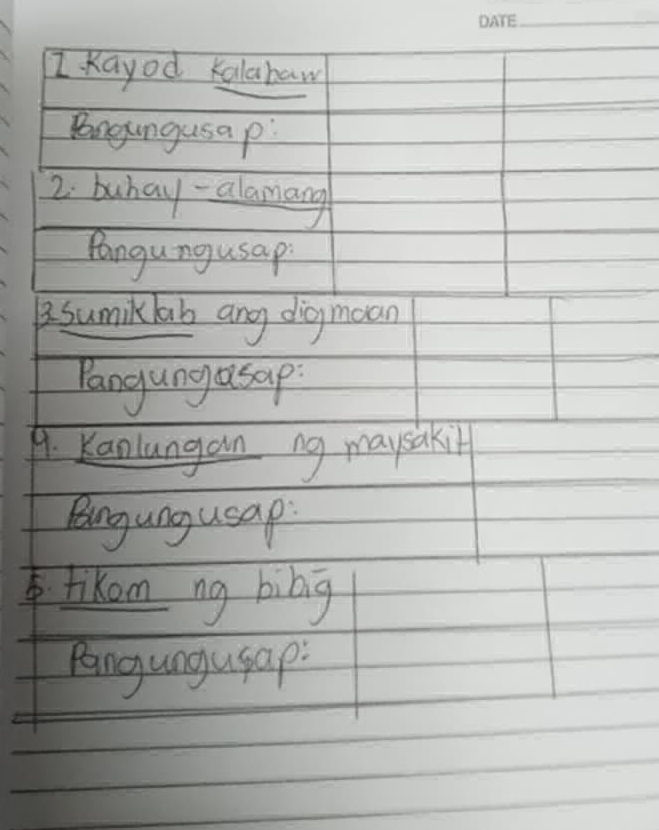 DATE
1. Kayod kalabaw
Pangungusap:
2. buhay-alamang
Pangungusap:
3. Sumiklab ang digmaan
Pangungusap:
4. Kanlungan ng maysakit
Pangungusap:
5. tikom ng bibig
Pangungusap: